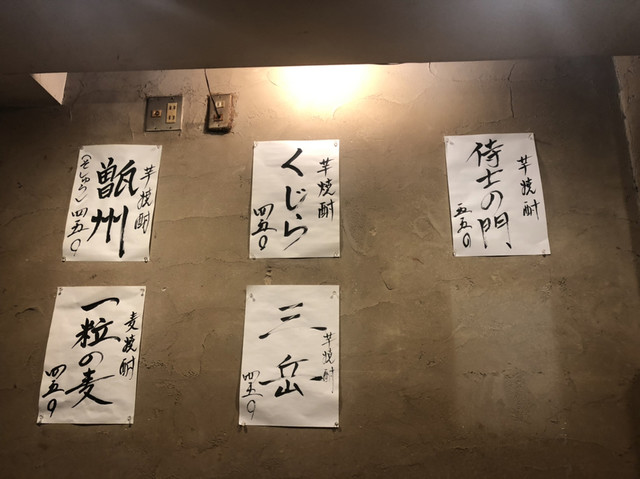 芋焼酎
甑州
(そしゅう)四五〇
芋焼酎
くじら
四五〇
芋焼酎
侍士の門、
五五〇
麦焼酎
一粒の麦
四五〇
芋焼酎
三岳
四五〇